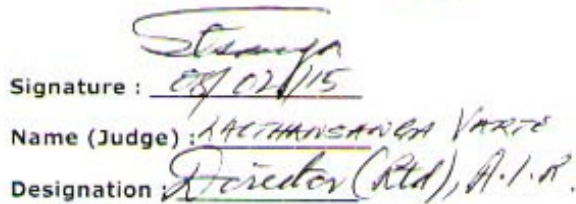 Signature :
08/02/15
Name (Judge) : LALTHANSANGA VARTE
Designation : Director (Rtd), A.I.R.